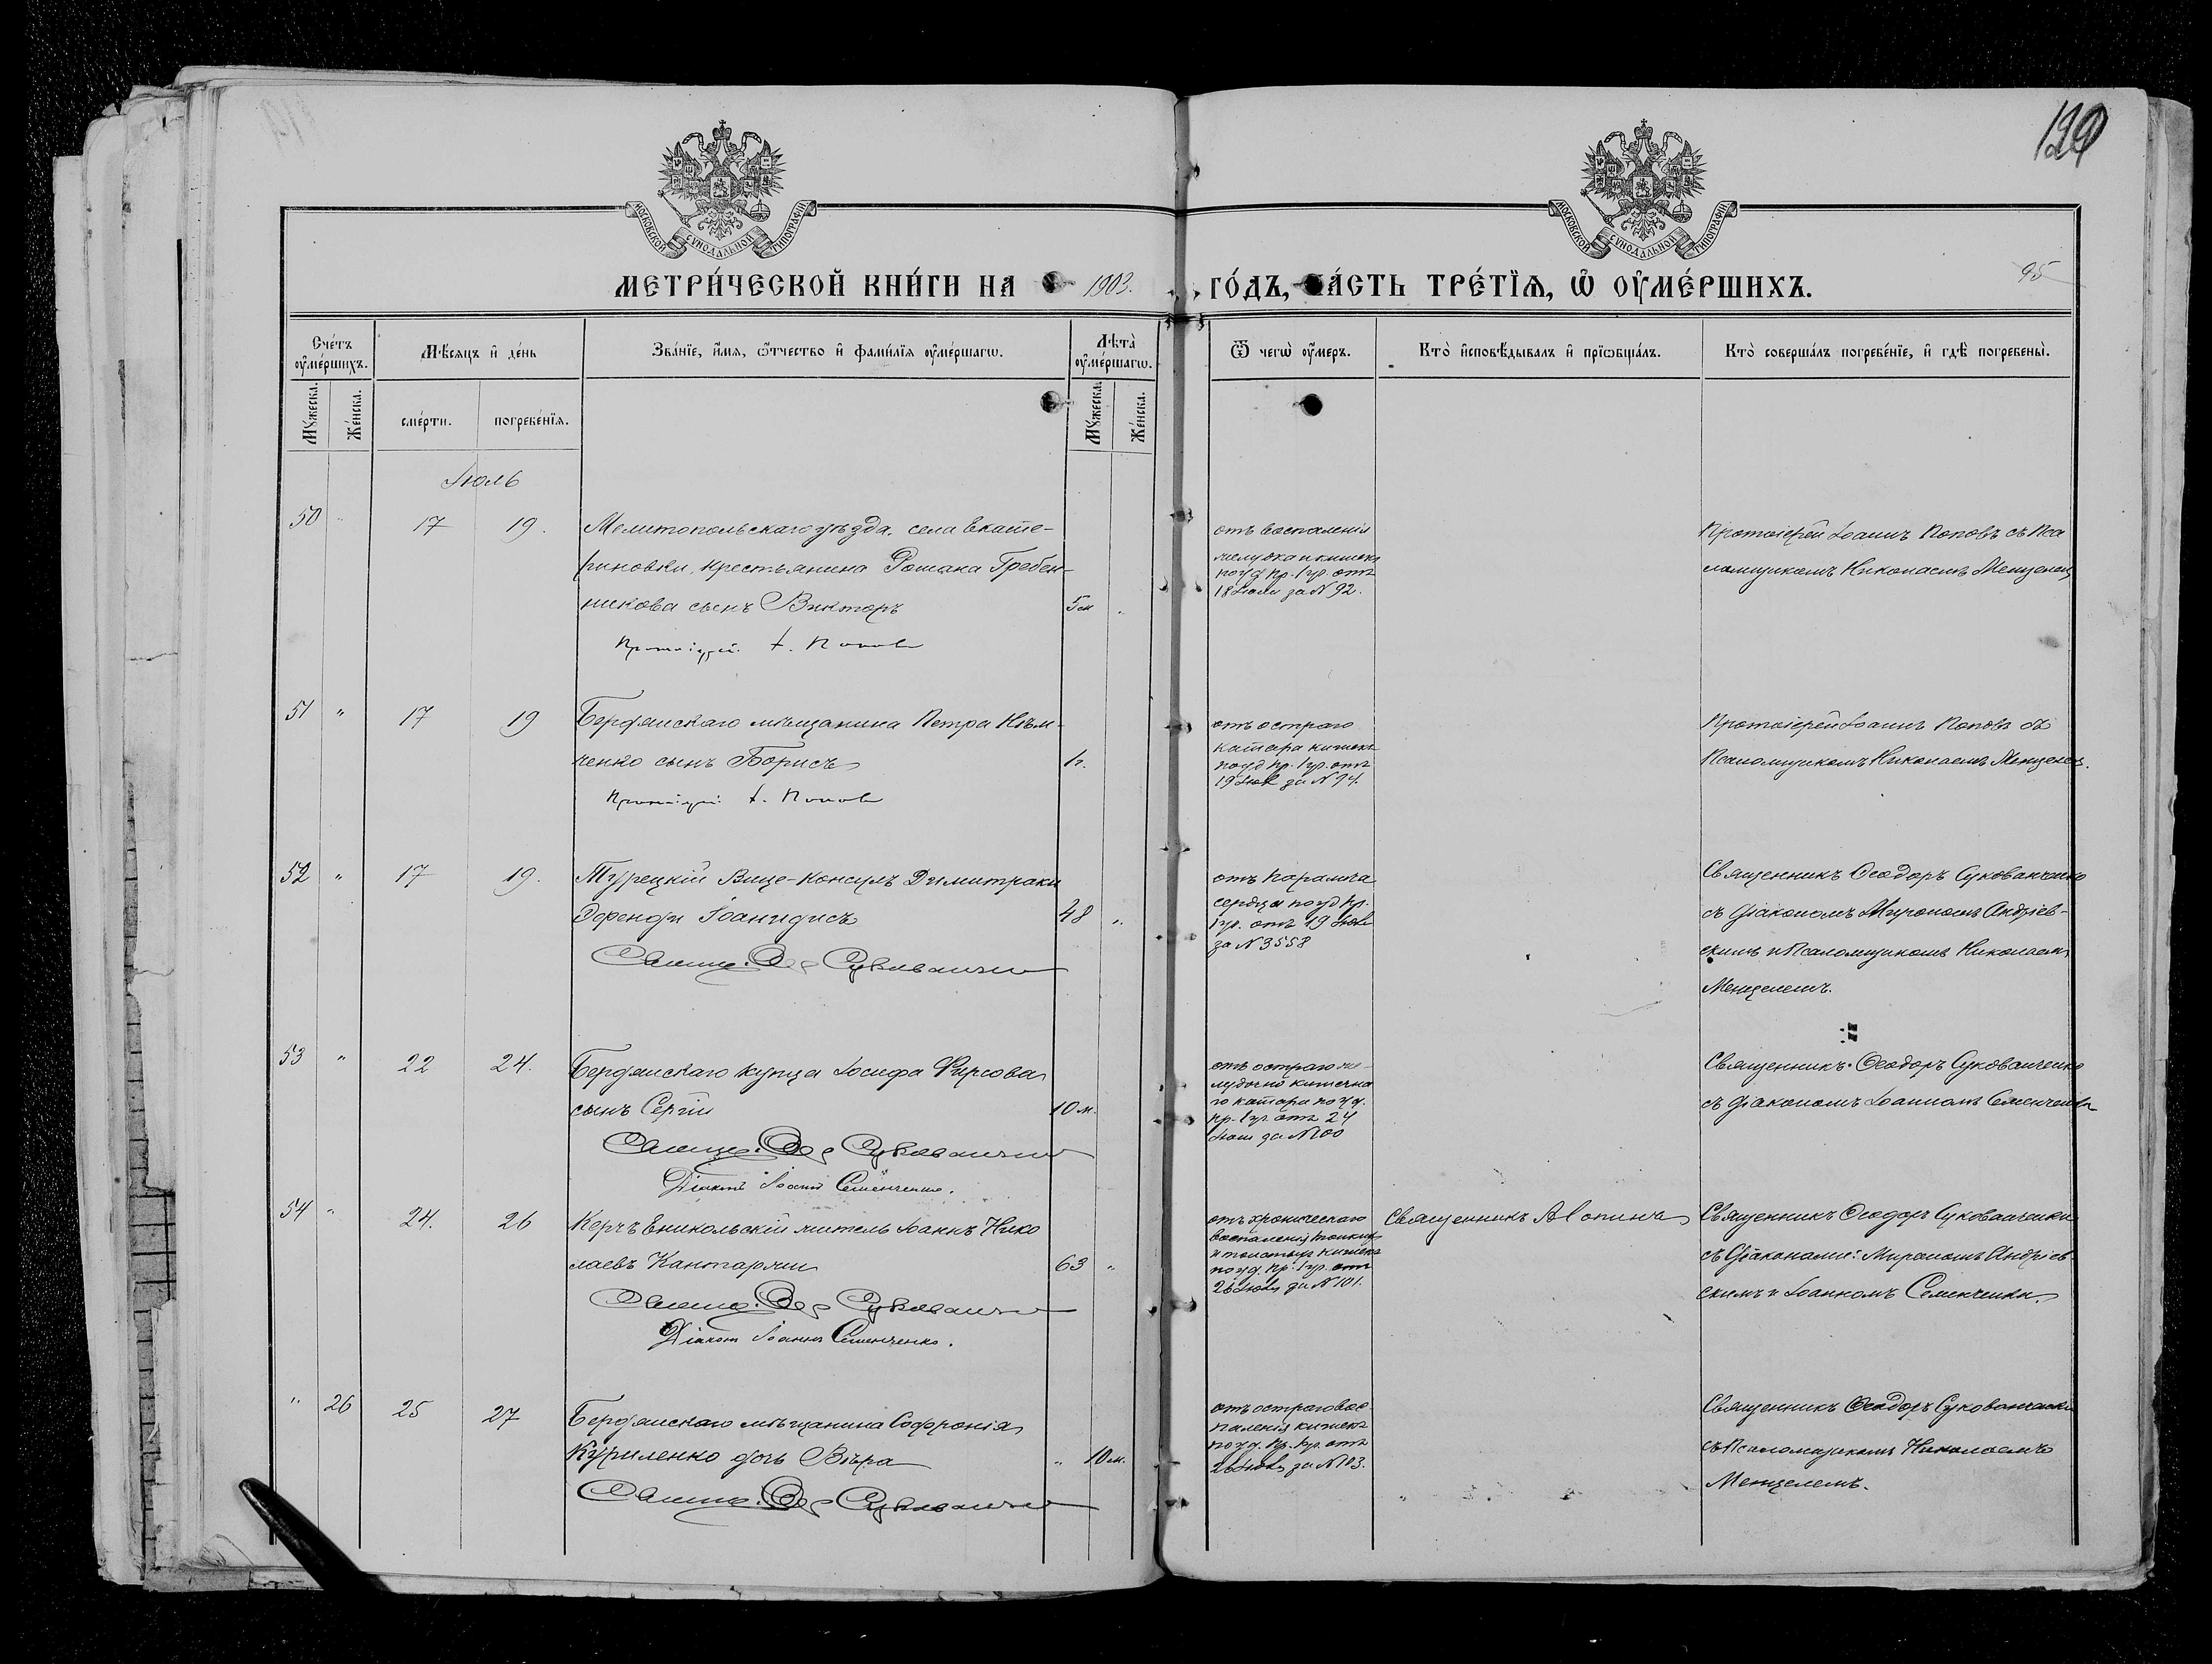 120
95
МОСКОВСКОЙ СУНОДАЛЬНОЙ ТИПОГРАФІИ
МОСКОВСКОЙ СУНОДАЛЬНОЙ ТИПОГРАФІИ
МЕТРИ́ЧЕСКОЙ КНИ́ГИ НА 1903. ГО́ДЪ, ЧА́СТЬ ТРЕ́ТЇѦ, Ѡ҆ ОУ҆МЕ́РШИХЪ.
Сче́тъ оу҆ме́ршихъ.
Мѣ́сѧцъ и҆ де́нь
Зва́нїе, и҆́мѧ, ѻ҆́тчество и҆ фами́лїѧ оу҆ме́ршагѡ.
Лѣ́та оу҆ме́ршагѡ.
Ѿ чегѡ̀ оу҆́меръ.
Кто̀ и҆сповѣ́дывалъ и҆ прїѡбща́лъ.
Кто̀ соверша́лъ погребе́нїе, и҆ гдѣ̀ погребены̀.
Мꙋ́жеска. Же́нска. сме́рти. погребе́нїѧ. Мꙋ́жеска. Же́нска.
Іюль
50 " 17 19. Мелитопольскаго уѣзда, села Екате-
риновки, крестьянина Романа Гребен-
никова сынъ Викторъ 5 м "
Протоіерей І. Поповъ
отъ воспаленія
желудка и кишекъ
по уд. пр. 1 гр. отъ
18 Іюля за N 92.
Протоіерей Іоаннъ Поповъ съ Пса
ломщикомъ Николаемъ Менцелемъ
51 " 17 19 Бердянскаго мѣщанина Петра Нѣм-
ченко сынъ Борисъ 1 г.
Протоіерей І. Поповъ
отъ остраго
катара кишекъ
по уд. пр. 1 гр. отъ
19 Іюля за N 94.
Протоіерей Іоаннъ Поповъ съ
Псаломщикомъ Николаемъ Менцелемъ.
52 " 17 19. Турецкій Вице-Консулъ Димитраки
Эфенди Іоанидисъ 48 "
Священ. Ѳео Сукованченко
отъ паралича
сердца по уд. пр.
1 гр. отъ 19 Іюля
за N 3558
Священникъ Ѳеодоръ Сукованченко
съ Діакономъ Мирономъ Андріев-
скимъ и Псаломщикомъ Николаемъ
Менцелемъ.
53 " 22 24. Бердянскаго купца Іосифа Фирсова
сынъ Сергій 10 м.
Священ. Ѳео Сукованченко
Діаконъ Іоаннъ Семенченко.
отъ остраго же-
лудочно кишечна
го катара по уд.
пр. 1 гр. отъ 24
Іюля за N 100
Священникъ Ѳеодоръ Сукованченко
съ Діакономъ Іоанномъ Семенченко
54 " 24. 26 Керчъ Еникольскій житель Іоаннъ Нико
лаевъ Кантаржи 63 "
Священ. Ѳео Сукованченко
Діаконъ Іоаннъ Семенченко.
отъ хроническаго
воспаленія тонкихъ
и толстыхъ кишекъ
по уд. пр. 1 гр. отъ
26 Іюля за N 101.
Священникъ
Священникъ Ѳеодоръ Сукованченко
съ Діаконами: Мирономъ Андріев
скимъ и Іоанномъ Семенченко.
" 26 25 27 Бердянскаго мѣщанина Софронія
Куриленко дочь Вѣра " 10 м.
Священ. Ѳео Сукованченко
отъ остраго вос
паленія кишекъ
по уд. пр. 1 гр. отъ
26 Іюля за N 103.
Священникъ Ѳеодоръ Сукованченко
съ Псаломщикомъ Николаемъ
Менцелемъ.